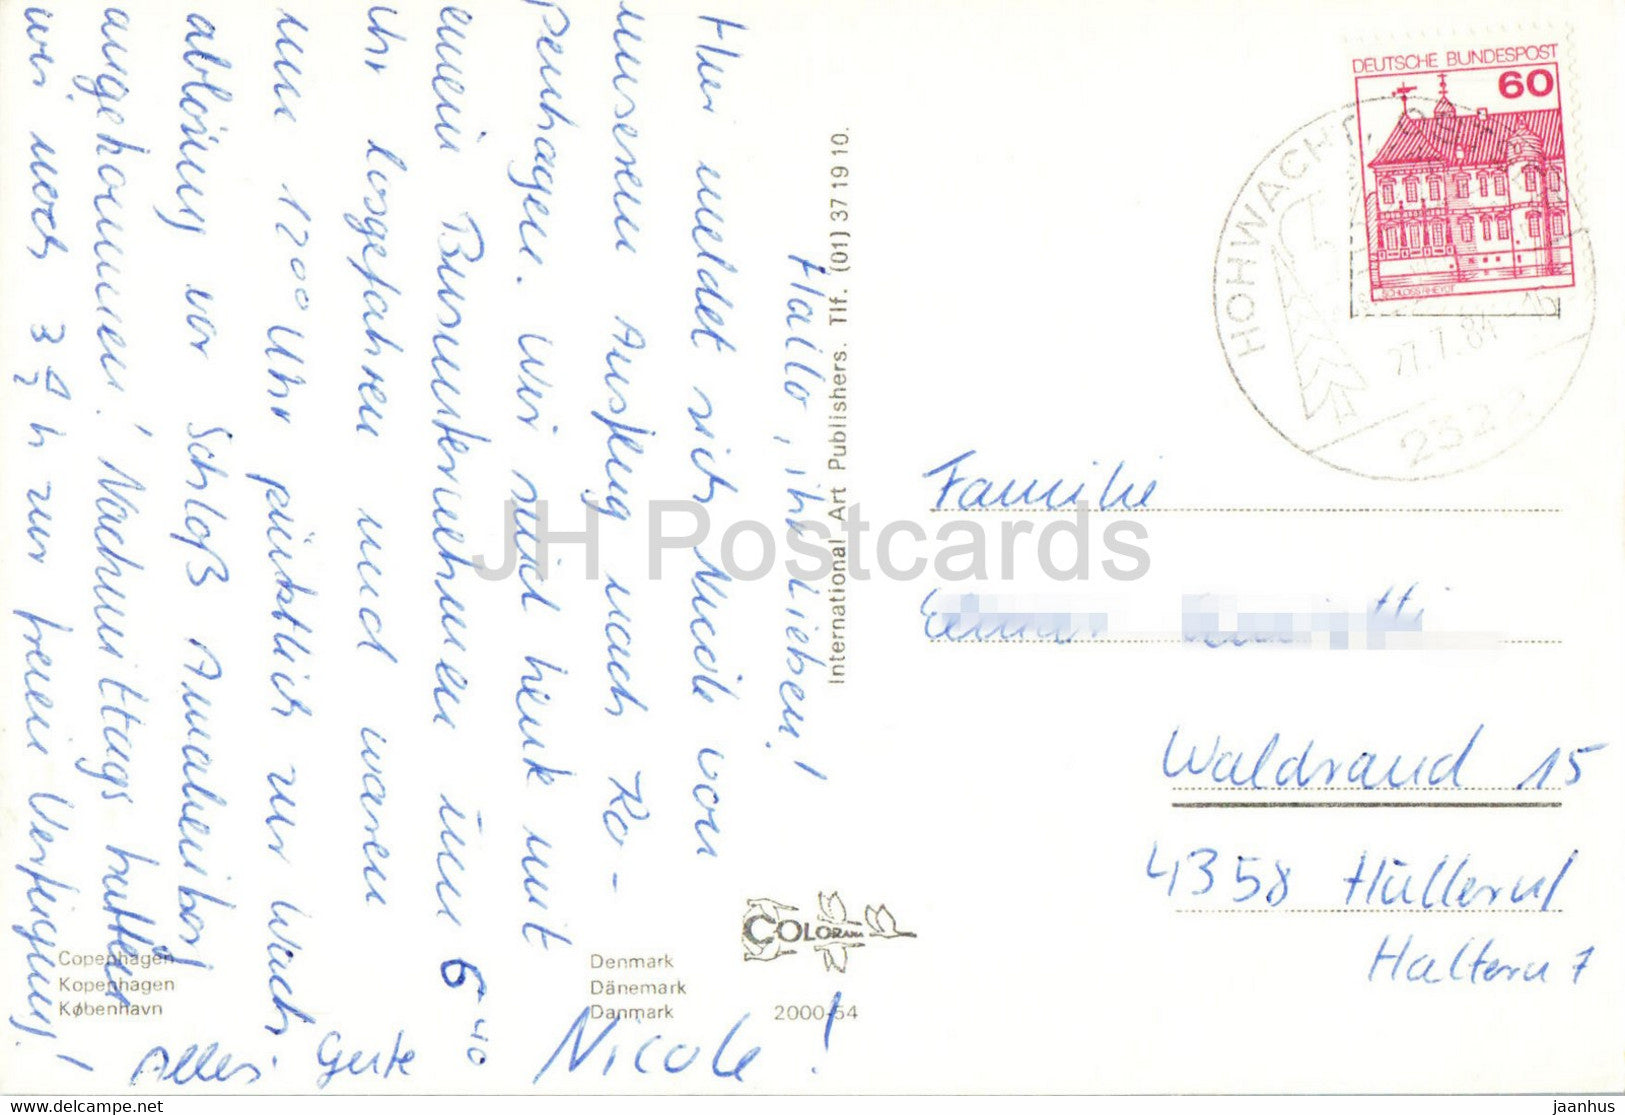 Hallo, ihr Lieben!
Hier meldet sich Nicole von
unserem Ausflug nach Ko-
penhagen. Wir sind heute mit
einem Busunternehmen um 6⁴⁰
Uhr losgefahren und waren
um 12⁰⁰ Uhr pünktlich zur Wach-
ablösung vor Schloß Amalienborg
angekommen! Nachmittags hatten
wir noch 3 1/2 h zur freien Verfügung!
Alles Gute
Nicole!
Copenhagen
Kopenhagen
København
Denmark
Dänemark
Danmark
COLORAMA
2000-54
International Art Publishers. Tlf. (01) 37 19 10.
DEUTSCHE BUNDESPOST
60
SCHLOSS RHEYDT
HOHWACHT
27.7.84
2322
Familie
Waldrand 15
4358 Hüllern/
Haltern 7
JH Postcards
delcampe.net
jaanhus